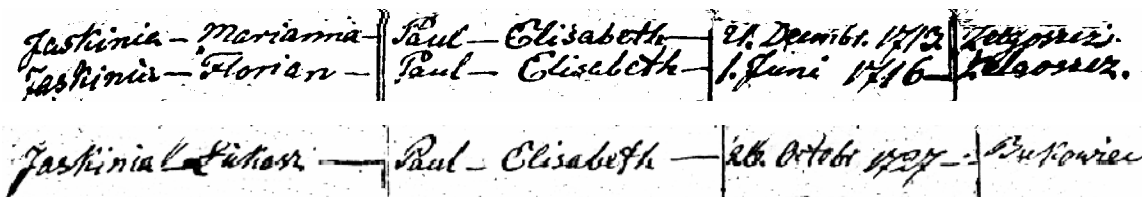 Jaskinia — Marianna — Paul — Elisabeth — 21. Decembr. 1713. Zelgoszcz.
Jaskinia — Florian — Paul — Elisabeth — 1. Juni 1716 — Zelgoszcz.
Jaskinia — Lukasz — Paul — Elisabeth — Octobr 1727 — Bukowiec